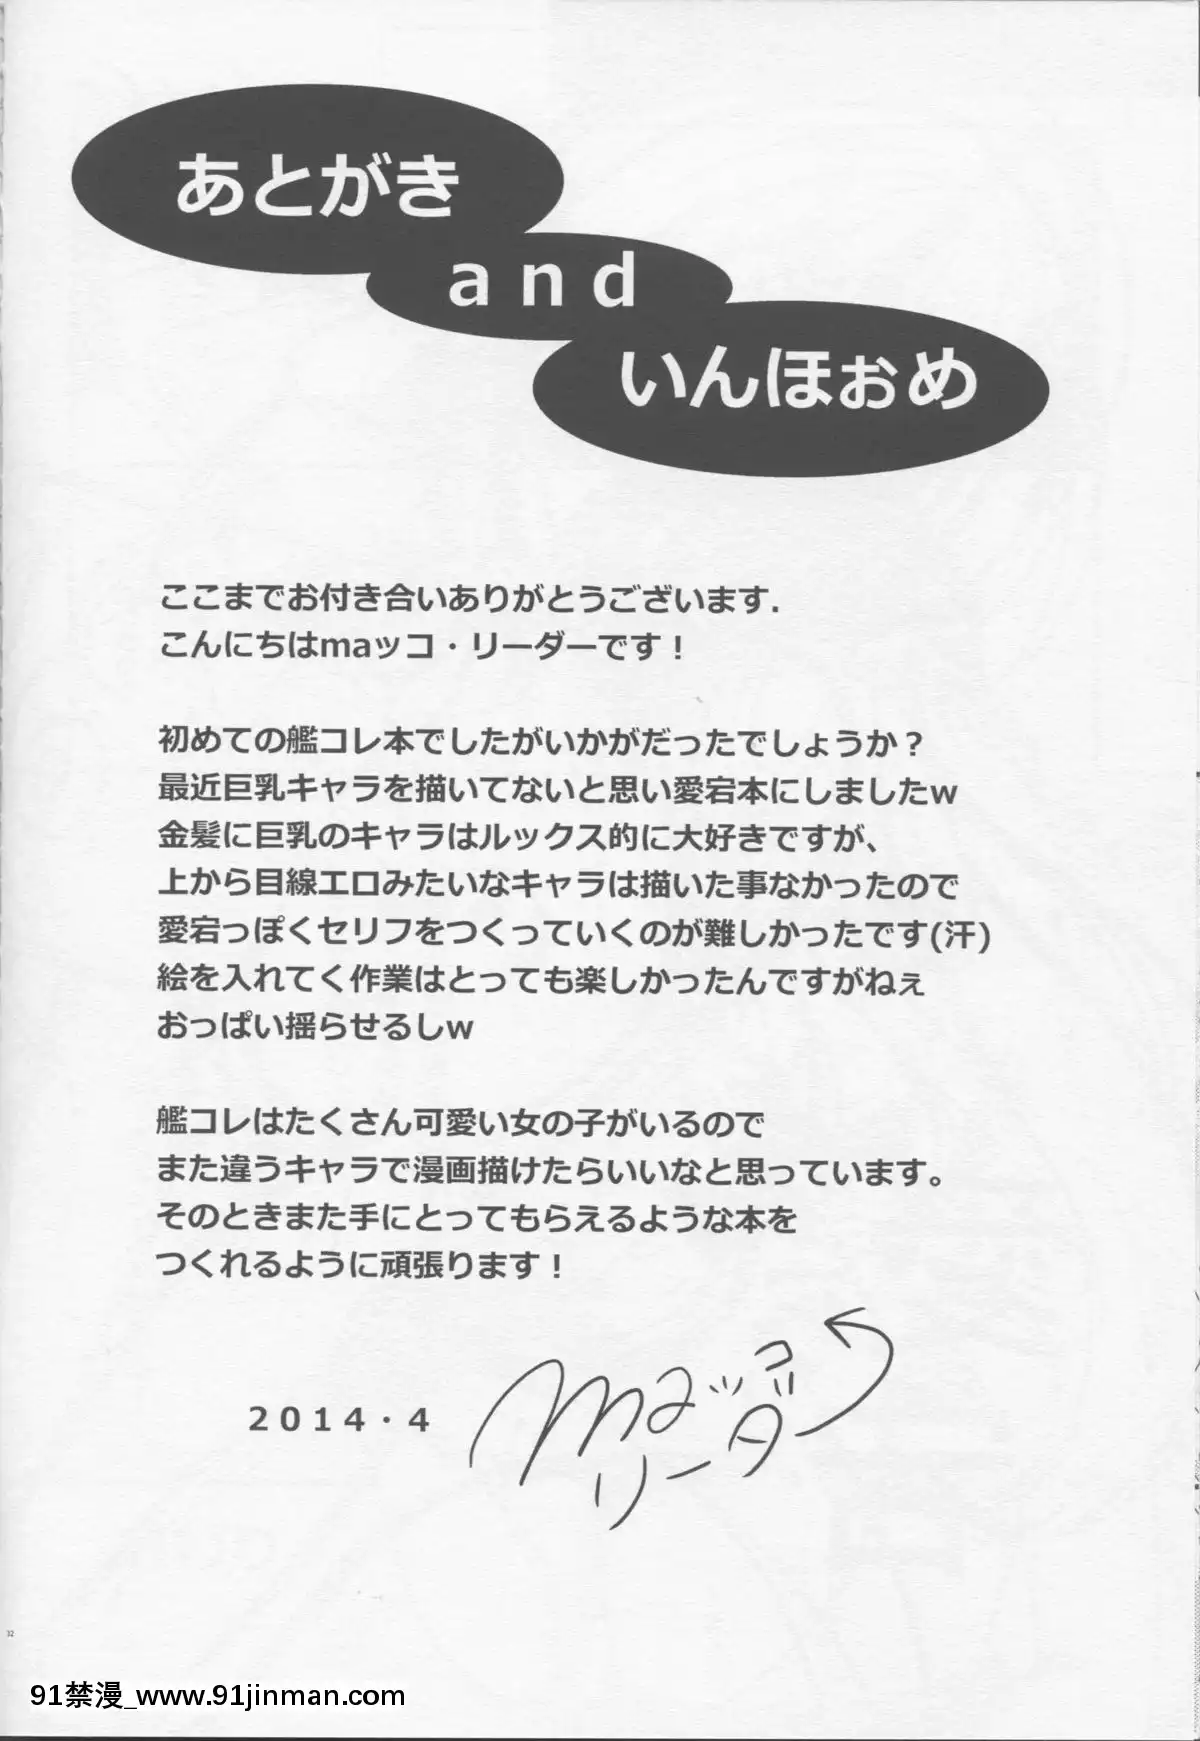 あとがき
and
いんほぉめ
ここまでお付き合いありがとうございます.
こんにちはmaッコ・リーダーです！
初めての艦コレ本でしたがいかがだったでしょうか？
最近巨乳キャラを描いてないと思い愛宕本にしましたw
金髪に巨乳のキャラはルックス的に大好きですが、
上から目線エロみたいなキャラは描いた事なかったので
愛宕っぽくセリフをつくっていくのが難しかったです(汗)
絵を入れてく作業はとっても楽しかったんですがねぇ
おっぱい揺らせるしw
艦コレはたくさん可愛い女の子がいるので
また違うキャラで漫画描けたらいいなと思っています。
そのときまた手にとってもらえるような本を
つくれるように頑張ります！
２０１４・４
maッコ
リーダ
32
91禁漫_www.91jinman.com